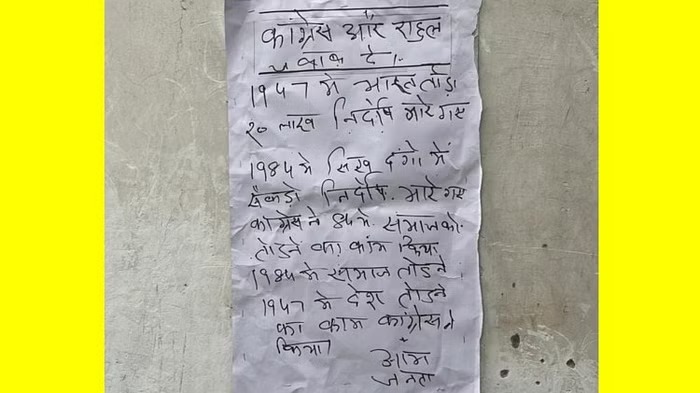 कांग्रेस और राहुल
जबाब दे।
1947 मे भारत तोड़ा
२० लाख निर्दोष मारे गए
1984 मे सिख दंगो में
सैकड़ो निर्दोष मारे गए
कांग्रेस ने 84 मे समाज को
तोडने का काम किया
1984 मे समाज तोडने
1947 मे देश तोडने
का काम कांग्रेस ने
किया।
आंम
जनता